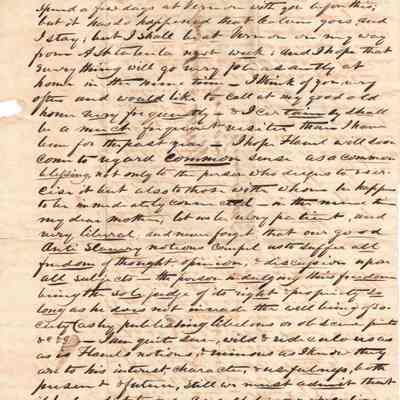 spend a few days at Vernon with you before this,
but it has so happened that Calvin goes and
I stay; but I shall be at Vernon on my way
from A to next week; and I hope that
every thing will go very pleasantly at
home in the mean time — I think of you very
often and would like to call at my good old
home very frequently — & I certainly shall
be a much frequent visiter than I have
been for the past year — I hope Hamel will soon
come to regard common sense as a common
blessing, not only to the person who deigns to exer-
cise it but also to those with whom he happens
to be immediately connected — in the mean time
my dear mother, let us be very patient, and
very liberal, and never forget that our good
Anti Slavery notions compel us to suffer all
freedom of thought, opinion, & discussion upon
all subjects — the person indulging this freedom
being the sole judge of its right & propriety so
long as he does not invade the well being of so-
ciety (as by publishing libelous or obscene prints
&c &c) — I am quite sure, wild & ridiculous
as is notions, & ruinous as I know they
are to his interest character, & usefulness, both
present & future, still we must admit that